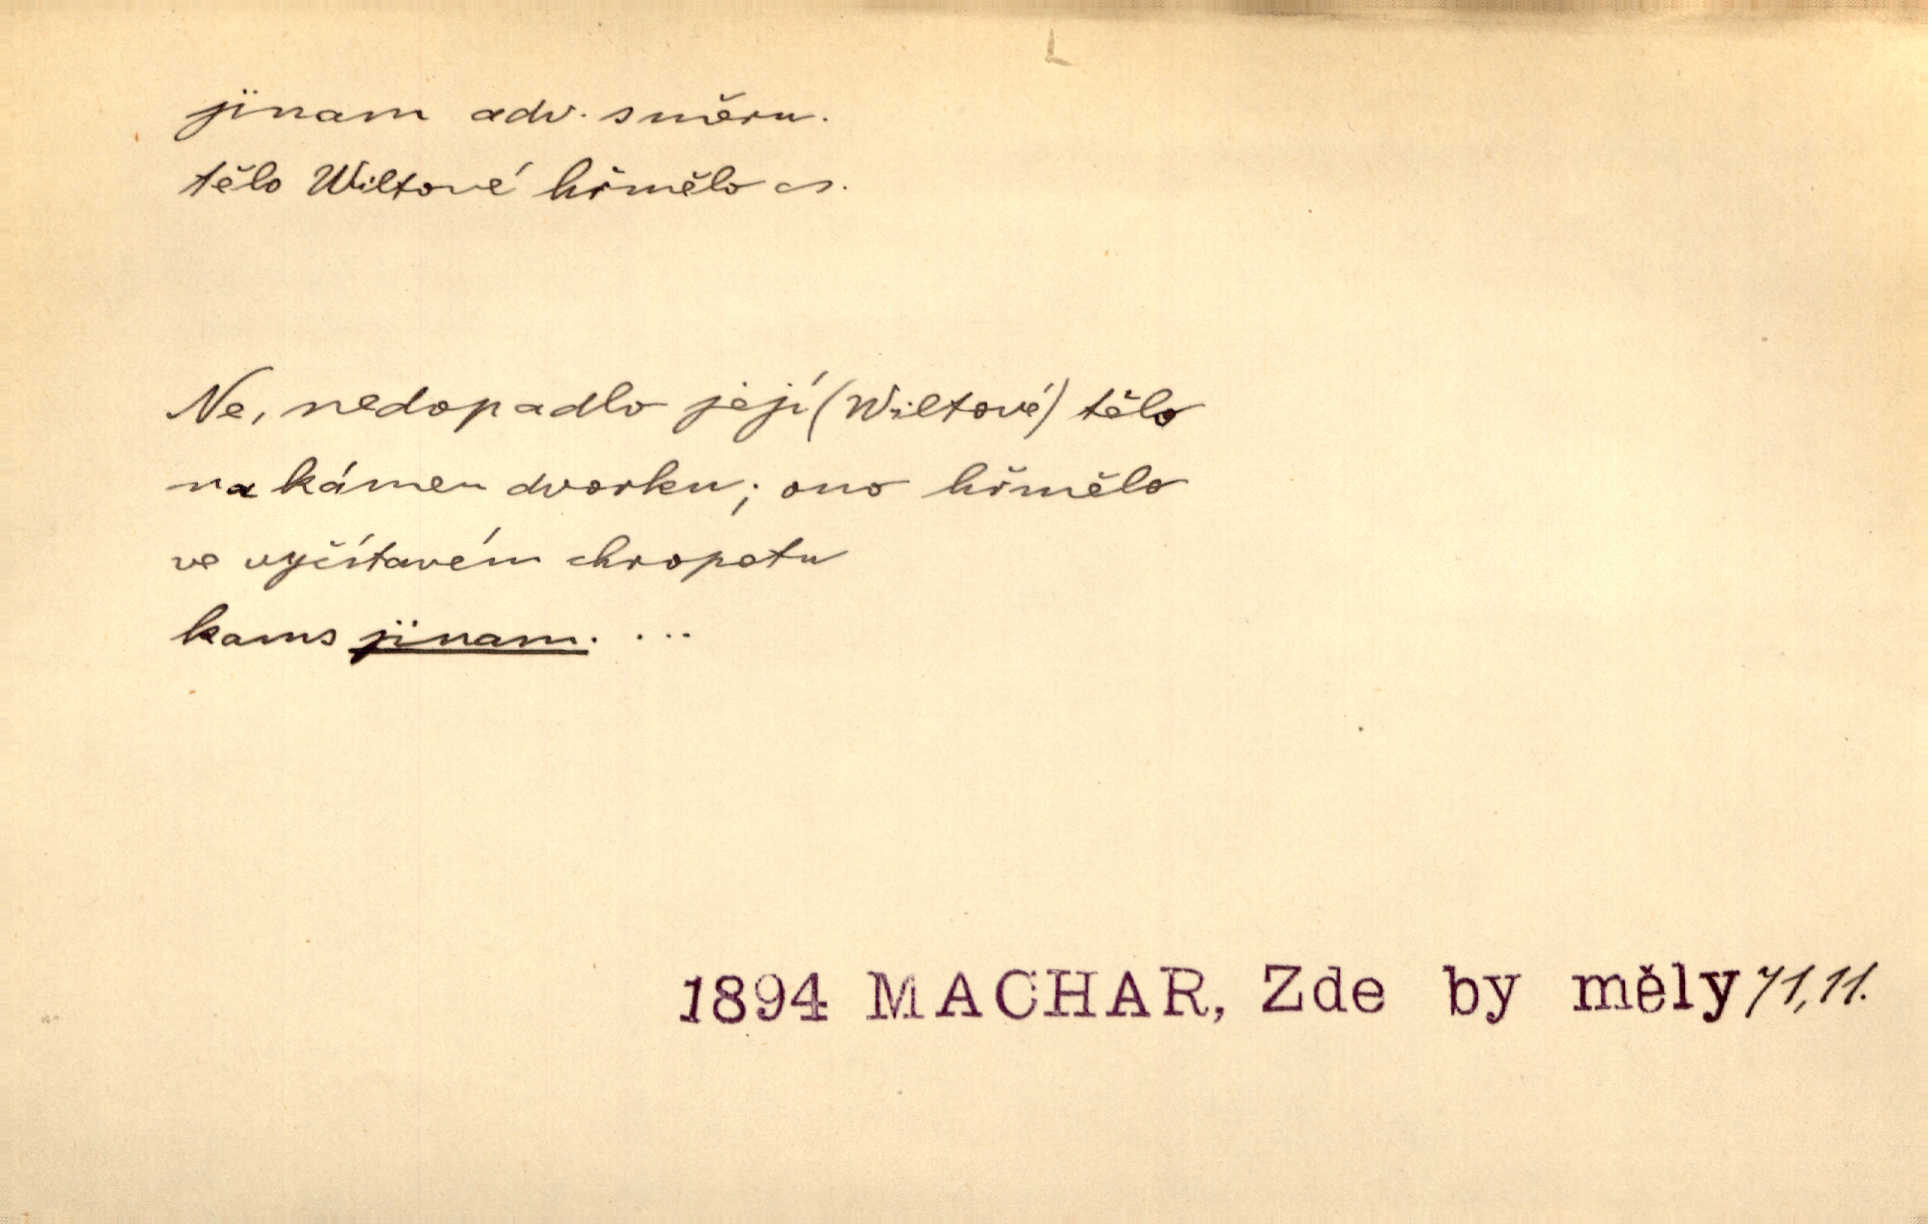 jinam adv. směru.
tělo Wiltové hřmělo cs.
Ne, nedopadlo její (Wiltové) tělo
na kámen dvorku; ono hřmělo
ve vyčítavém chropotu
kams jinam. ...
1894 MACHAR, Zde by měly 71, 11.